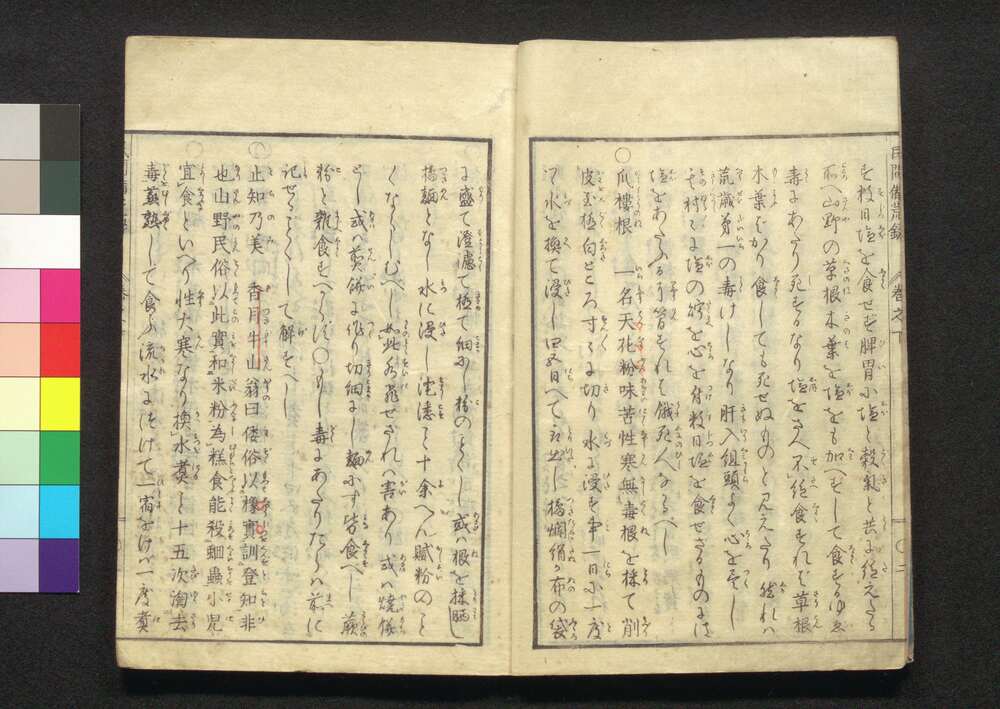 民間備荒録 巻之下
を数日塩を食せず脾胃小塩と穀氣と共に絶えたる
所へ山野の草根木葉を塩をも加へずして食するゆゑ
毒にあたり死するなり塩を食人不絶食すれば草根
木葉ばかり食しても死せぬものと見えたり然れハ
荒歳第一の毒けしなり肝入組頭よく心を
其村に塩の貯を心を付数日塩を食せざるものには
塩をあたふる事皆それも餓死人なるべし
〇瓜樓根 一名天花粉味苦性寒無毒根を採て削
皮至極白ところ寸々に切り水に浸を事一日に一度
て水を換て浸し四五日へて取出し搗爛絹か布の袋
に盛て澄濾て極て細にし粉のごとくし或ハ根を採晒
搗麺となし水に浸し澄濾こと十余へん賦粉のごと
くならしむべし如此水飛せざれハ害あり或ハ焼餅
とし或ハ煎餅に作り切細にし麺に皆食べし 蕨
粉と糀食をべからず〇もし毒にあたりたらハ前に
記せるごとくして解をべし
〇止知乃美 香月牛山翁曰倭俗以橡實訓登知非
也山野民俗以此實和米粉為糕食能殺蛔蟲小児
宜食といへり性大寒なり換水煮こと十五次淘去
毒蒸熟して食ふ流水につけて一宿おけば一度煮